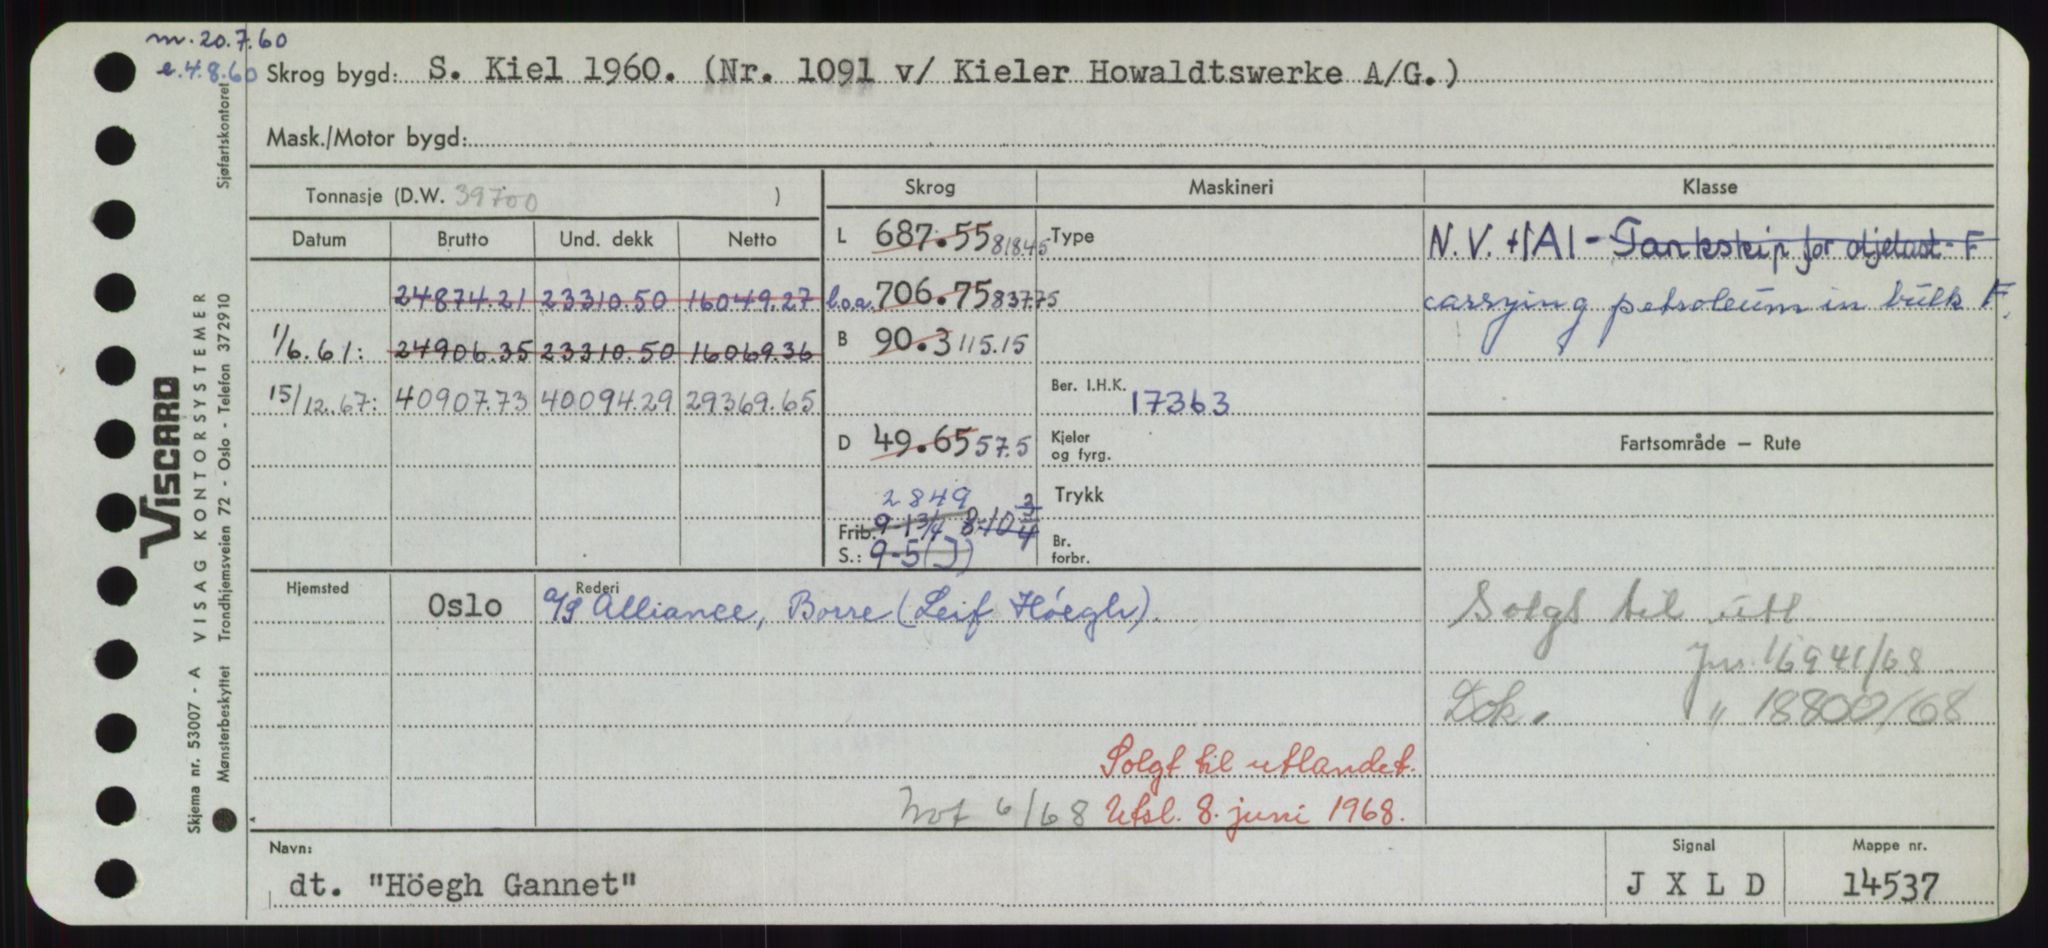 m. 20.7.60
e. 4.8.60
Skrog bygd: S. Kiel 1960. (Nr. 1091 v/ Kieler Howaldtswerke A/G.)
Mask./Motor bygd:
Tonnasje (D.W. 39700 )
Skrog Maskineri Klasse
Datum Brutto Und. dekk Netto
L 687.55 818.45 Type
N.V. +1A1 - Tankskip for oljelast - F
24874.21 23310.50 16049.27
l.o.a. 706.75 837.75
carrying petroleum in bulk F.
1/6.61: 24906.35 23310.50 16069.36
B 90.3 115.15
15/12.67: 40907.73 40094.29 29369.65
Ber. I.H.K. 17363
D 49.65 57.5
Kjeler og fyrg.
Fartsområde — Rute
2849
Trykk
Frib. 9-1 3/4 8-10 3/4
S.: 9-5 (J)
Br. forbr.
Hjemsted Rederi
Oslo a/s Alliance, Borre (Leif Höegh).
Solgt til utl
Jnr. 16941/68
Dok. " 18800/68
Solgt til utlandet.
Not 6/68 Utsl. 8. juni 1968.
Navn: Signal Mappe nr.
dt. "Höegh Gannet" J X L D 14537
VISCARD
Skjema nr. 53007 - A VISAG KONTORSYSTEMER
Mønsterbeskyttet Trondhjemsveien 72 - Oslo - Telefon 372910 Sjøfartskontoret